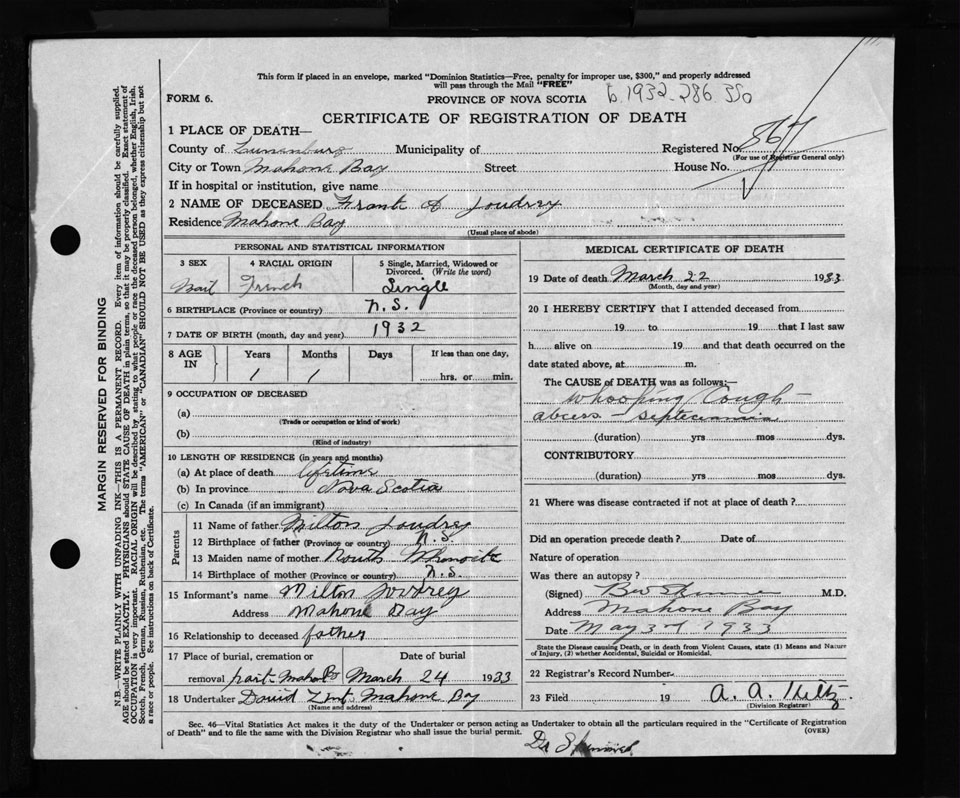 This form if placed in an envelope, marked "Dominion Statistics—Free, penalty for improper use, $300," and properly addressed
will pass through the Mail "FREE"
FORM 6.
PROVINCE OF NOVA SCOTIA
b 1932 286 350
CERTIFICATE OF REGISTRATION OF DEATH
1 PLACE OF DEATH—
County of Lunenburg Municipality of
Registered No. 867
(For use of Registrar General only)
City or Town Mahone Bay Street House No.
If in hospital or institution, give name
2 NAME OF DECEASED Frank A Joudrey
Residence Mahone Bay
(Usual place of abode)
MARGIN RESERVED FOR BINDING
N.B.—WRITE PLAINLY WITH UNFADING INK—THIS IS A PERMANENT RECORD. Every item of information should be carefully supplied.
AGE should be stated EXACTLY. PHYSICIANS should STATE CAUSE OF DEATH in plain terms, so that it may be properly classified. Exact statement of
OCCUPATION is very important. RACIAL ORIGIN will be described by stating to what people or race the deceased person belonged, whether English, Irish,
Scotch, French, German, Russian, Ruthenian, etc. The terms "AMERICAN" or "CANADIAN" SHOULD NOT BE USED as they express citizenship but not
a race or people. See instructions on back of Certificate.
PERSONAL AND STATISTICAL INFORMATION
3 SEX
4 RACIAL ORIGIN
French
5 Single, Married, Widowed or
Divorced. (Write the word)
Single
6 BIRTHPLACE (Province or country) N.S.
7 DATE OF BIRTH (month, day and year) 1932
8 AGE IN
Years 1
Months 1
Days
If less than one day,
hrs. or min.
9 OCCUPATION OF DECEASED
(a)
(Trade or occupation or kind of work)
(b)
(Kind of industry)
10 LENGTH OF RESIDENCE (in years and months)
(a) At place of death lifetime
(b) In province Nova Scotia
(c) In Canada (if an immigrant)
Parents
11 Name of father Milton Joudrey
12 Birthplace of father (Province or country) N.S.
13 Maiden name of mother
14 Birthplace of mother (Province or country) N.S.
15 Informant's name Milton Joudrey
Address Mahone Bay
16 Relationship to deceased father
17 Place of burial, cremation or
removal
Date of burial
March 24 1933
18 Undertaker David Mahone Bay
(Name and address)
MEDICAL CERTIFICATE OF DEATH
19 Date of death March 22 1933
(Month, day and year)
20 I HEREBY CERTIFY that I attended deceased from
19 to 19 that I last saw
h alive on 19 and that death occurred on the
date stated above, at m.
The CAUSE of DEATH was as follows:—
Whooping Cough —
abcess — septicemia
(duration) yrs mos dys.
CONTRIBUTORY
(duration) yrs mos dys.
21 Where was disease contracted if not at place of death?
Did an operation precede death? Date of
Nature of operation
Was there an autopsy?
(Signed) M.D.
Address Mahone Bay
Date May 3rd 1933
State the Disease causing Death, or in death from Violent Causes, state (1) Means and Nature
of Injury, (2) whether Accidental, Suicidal or Homicidal.
22 Registrar's Record Number
23 Filed 19 A. A.
(Division Registrar)
Sec. 46—Vital Statistics Act makes it the duty of the Undertaker or person acting as Undertaker to obtain all the particulars required in the "Certificate of Registration
of Death" and to file the same with the Division Registrar who shall issue the burial permit. (OVER)